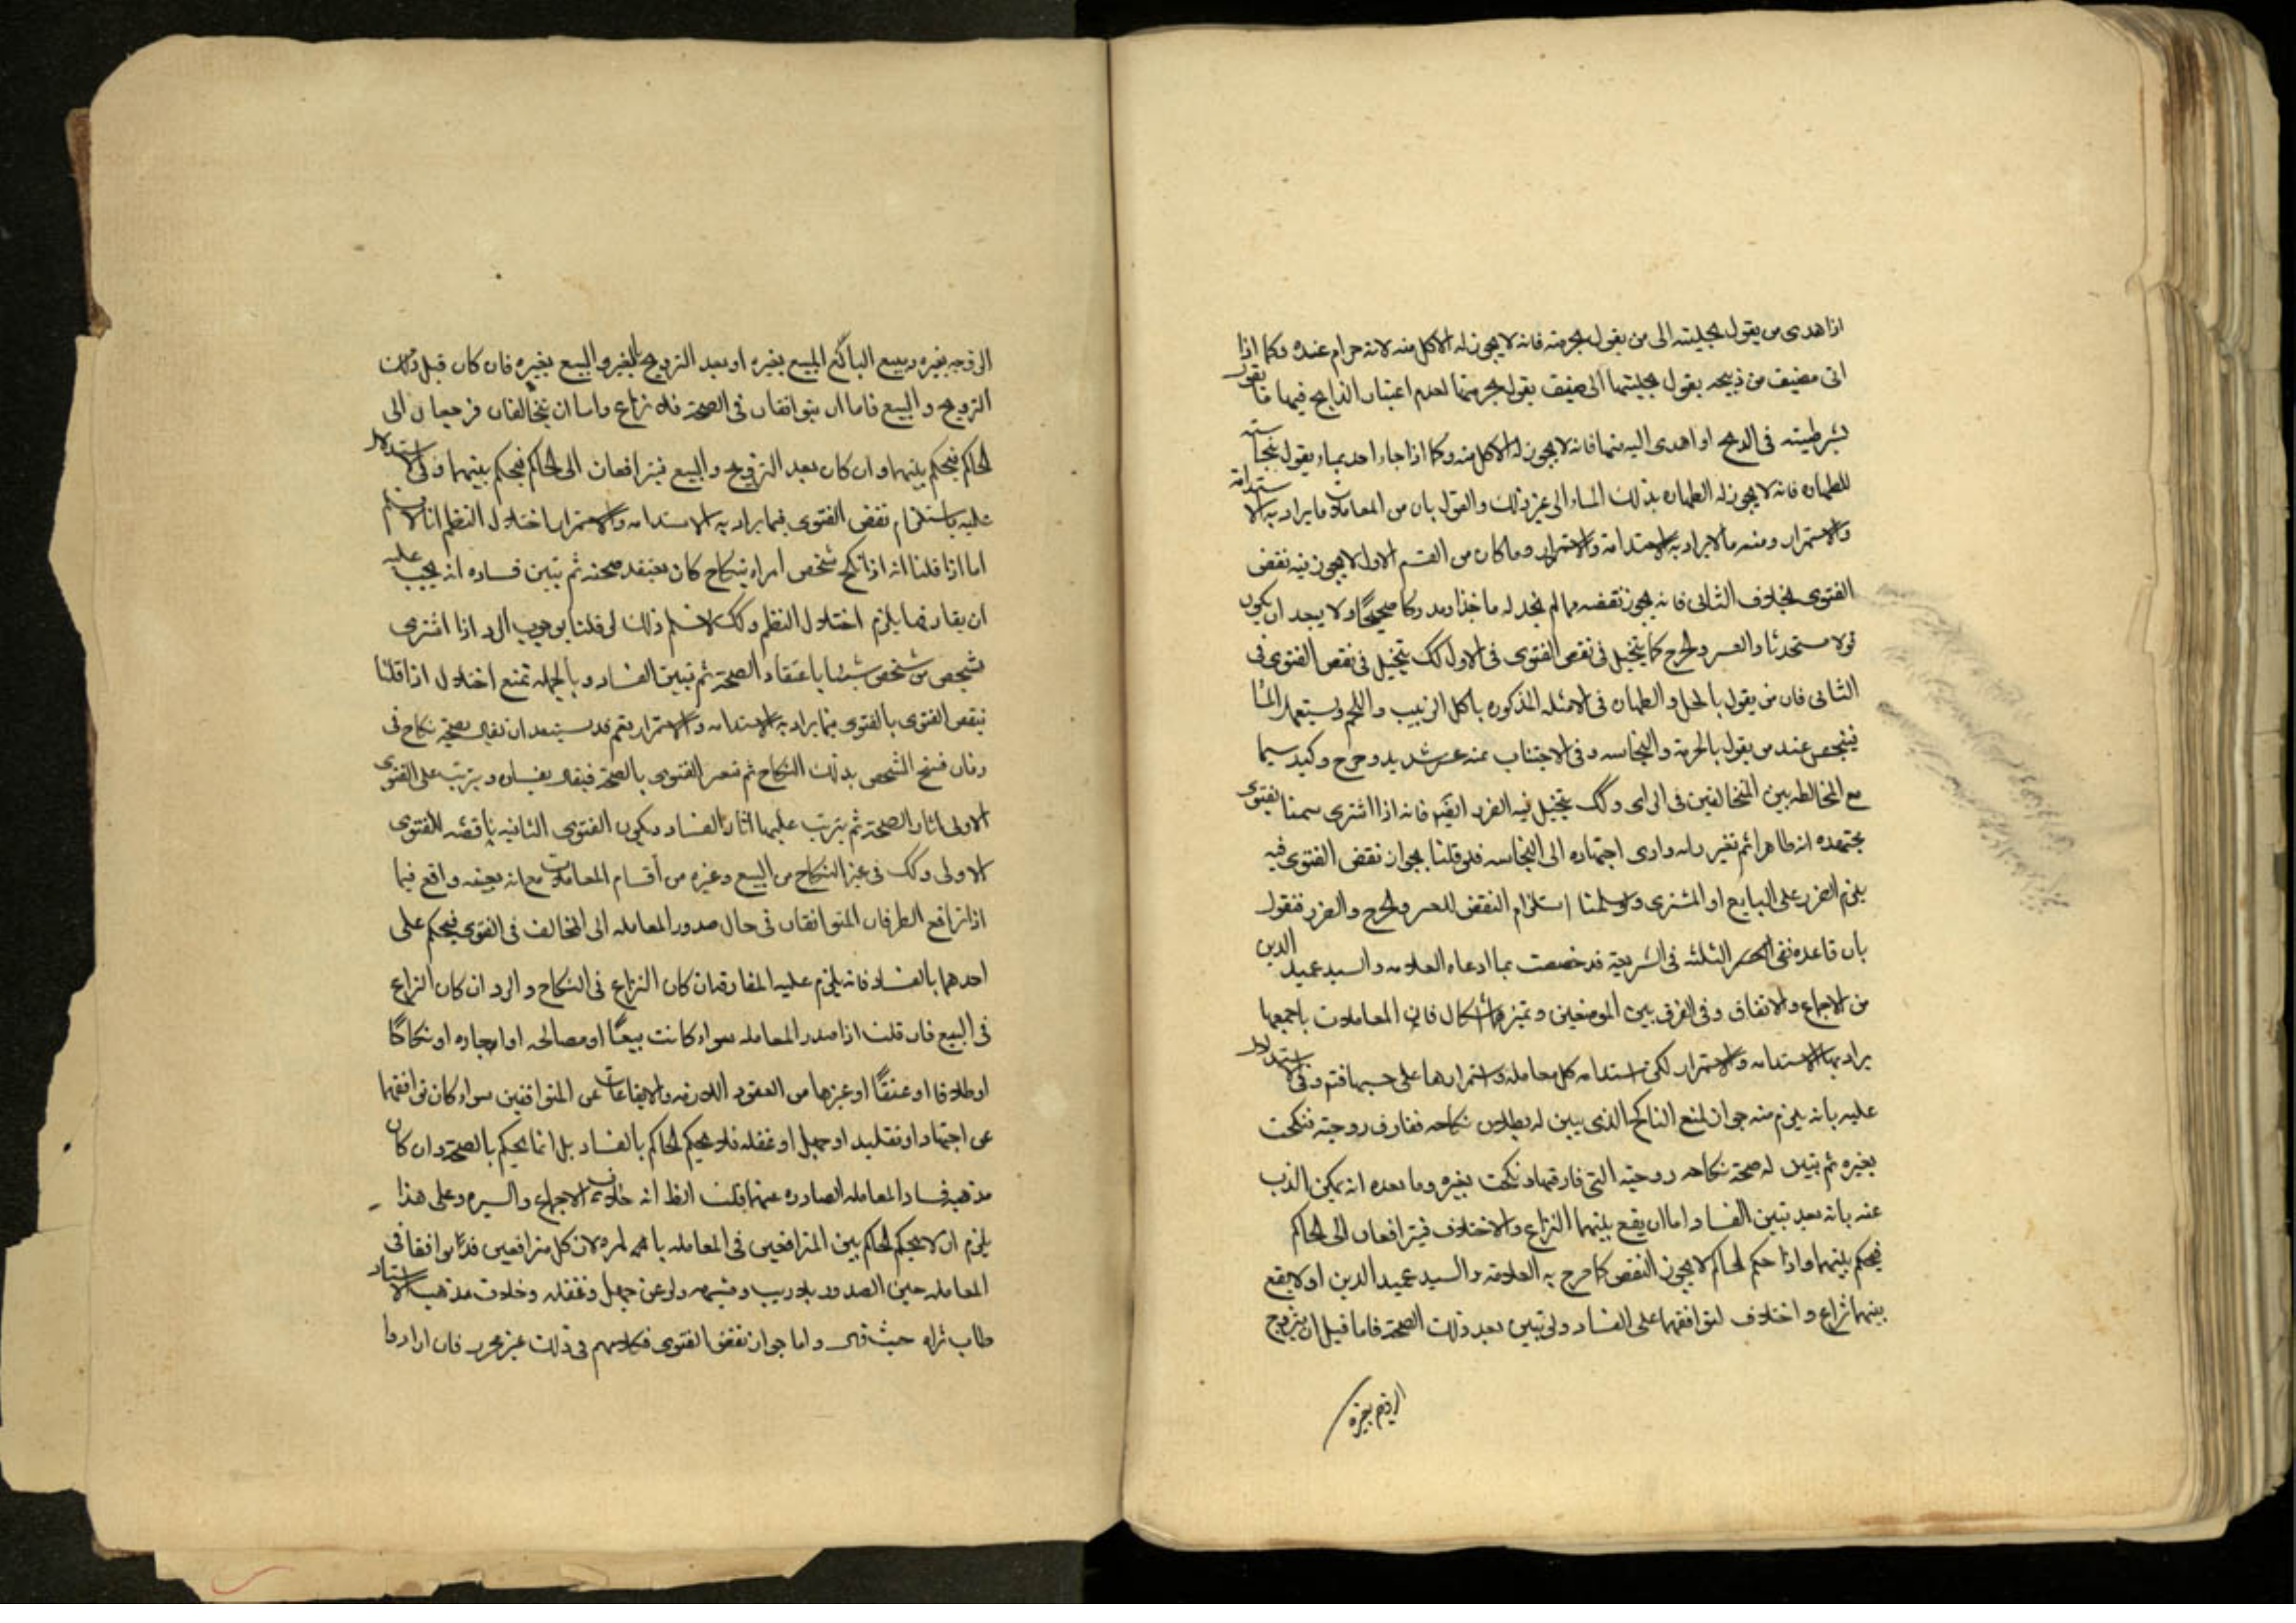 اذا هدى من يقول بحليته الى من يقول بحرمته فانه لا يجوز له الاكل منه لانه حرام عنده وكما اذا
اتى مضيف من ذبيحه يقول بحليتها الى ضيف يقول بحرمتها لعدم اعتبار الذابح فيها ما يقول
بشرطيته فى الذبح او اهدى اليه منها فانه لا يجوز له الاكل منه وكما اذا جاء احد بماء يقول بنجاسته
للطهاره فانه لا يجوز له الطهاره بذلك الماء الى غير ذلك والقول بان من المعاملات ما يراد به الاستدامة
والاستمرار ومنه ما لا يراد به الاستدامة والاستمرار وما كان من القسم الاول لا يجوز فيه نقض
الفتوى بخلاف الثانى فانه يجوز نقضه مما لم نجد له ماخذا ومدركا صحيحًا ولا يجد ان يكون
قولا مستحدثا والعسر والحرج كما يتخيل فى نقض الفتوى فى الاول كك يتخيل فى نقض الفتوى فى
الثانى فان من يقول بالحل والطهاره فى الامثله المذكوره باكل الزبيب واللحم ويستعمل الماء
فينجس عند من يقول بالحرمة والنجاسه وفى الاجتناب عنه عسر شديد وحرج وكيد سيما
مع المخالطه بين المتخالفين فى الراى وكك يتخيل فيه الضرر ايضا فانه اذا اشترى سمنا بفتوى
مجتهده انه طاهر ثم تغير رايه وادى اجتهاده الى النجاسه فلو قلنا بجواز نقض الفتوى فيه
يلزم الضرر على البايع او المشترى ولو سلمنا استلزام النقض للعسر والحرج والضرر فنقول
بان قاعده نفى العسر الثلثه فى الشريعة قد خصصت بما ادعاه العلامه والسيد عميد الدين
من الاجماع والاتفاق وفى الفرق بين الموضعين وتميزهما اشكال فان المعاملات باجمعها
يراد بها الاستدامه والاستمرار لكن استدامه كل معامله واستمرارها على حسبها فتم وفى الاستدلال
عليه بانه يلزم منه جواز لمنع الناكح الذى يبين له بطلان نكاحه ففارق زوجته فنكحت
بغيره ثم تبين له صحة نكاحه زوجته التى فارقها ونكحت بغيره وما بعده انه يمكن الذب
عنه بانه بعد تبين الفساد اما ان يقع بينهما النزاع والاختلاف فيترافعان الى الحاكم
فيحكم بينهما واذا حكم الحاكم لا يجوز النقض كما صرح به العلامة والسيد عميد الدين او لا يقع
بينهما نزاع واختلاف لتوافقهما على الفساد ولو تبين بعد ذلك الصحة فاما قبل ان يتزوج
الزوجه بغيره
الزوجه بغيره ويبيع البائع المبيع بغيره او بعد التزويج بالغير والبيع بغيره فان كان قبل ذلك
التزويج والبيع فاما ان يتوافقان فى الصحة فلا نزاع واما ان يتخالفان فرجعان الى
الحاكم فيحكم بينهما وان كان بعد التزويج والبيع فيترافعان الى الحاكم فيحكم بينهما وفى الاستدلال
عليه باستلزام نقض الفتوى فيما يراد به الاستدامه والاستمرار اختلال النظم انا لا نسلم
اما اذا قلنا انه اذا نكح شخص امراه بنكاح كان يعتقد صحته ثم تبين فساده انه يجب عليه
ان يفارقها يلزم اختلال النظم وكك لا نسلم ذلك لو قلنا بوجوب الرد اذا اشترى
شخص من شخص شيئا باعتقاد الصحة ثم تبين الفساد وبالجمله نمنع اختلال اذا قلنا
بنقض الفتوى بالفتوى فيما يراد به الاستدامه والاستمرار نعم قد يستبعد ان يقال بصحة نكاح فى
زمان فسخ الشخص بذلك النكاح ثم تغير الفتوى بالصحة فيقال بفساده ويترتب على الفتوى
الاولى اثار الصحة ثم يترتب عليها اثار الفساد ويكون الفتوى الثانيه ناقضه للفتوى
الاولى وكك فى غير النكاح من البيع وغيره من أقسام المعاملات مع انه بعينه واقع فيما
اذا ترافع الطرفان المتوافقان فى حال صدور المعامله الى المخالف فى الفتوى فيحكم على
احدهما بالفساد فانه يلزم عليه المفارقة ان كان النزاع فى النكاح والرد ان كان النزاع
فى البيع فان قلت اذا صدر المعامله سواء كانت بيعًا او مصالحه او اجاره او نكاحًا
او طلاقا او عتقًا او غيرها من العقود اللازمه والايقاعات عن المتوافقين سواء كان توافقهما
عن اجتهاد او تقليد او جهل او غفله فلا يحكم الحاكم بالفساد بل انما يحكم بالصحة وان كان
مذهبه فساد المعامله الصادره عنهما قلت الظ انه خلاف الاجماع والسيره وعلى هذا
يلزم ان لا يحكم الحاكم بين المترافعين فى المعامله بالمره لان كل مترافعين قد توافقا فى
المعامله حين الصدور بلا ريب وشبهه ولو عن جهل وغفله وخلاف مذهب الاستاد
طاب ثراه حيث قال واما جواز نقض الفتوى فكلامهم فى ذلك غير محرر فان ارادوا